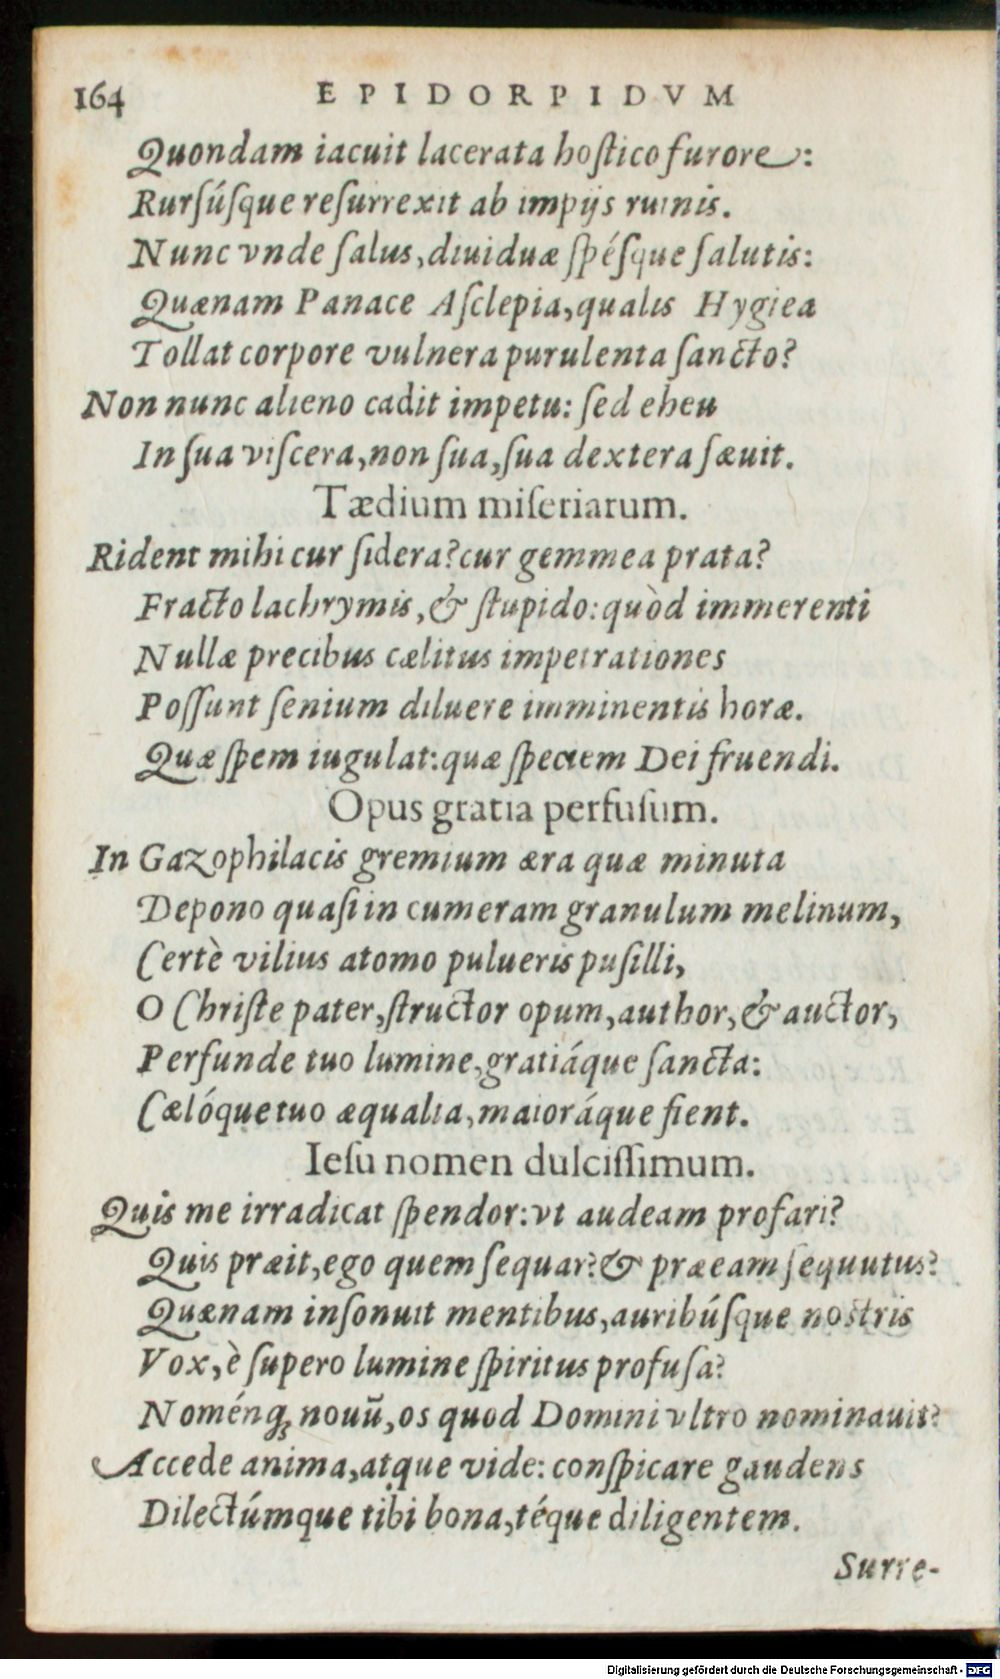 164 EPIDORPIDVM
Quondam iacuit lacerata hoſtico furore:
Rurſúſque reſurrexit ab impijs ruinis.
Nunc vnde ſalus, diuiduæ ſpéſque ſalutis:
Quænam Panace Aſclepia, qualis Hygiea
Tollat corpore vulnera purulenta ſancto?
Non nunc alieno cadit impetu: ſed eheu
In ſua viſcera, non ſua, ſua dextera ſæuit.
Tædium miſeriarum.
Rident mihi cur ſidera? cur gemmea prata?
Fracto lachrymis, & ſtupido: quòd immerenti
Nullæ precibus cælitus impetrationes
Poſſunt ſenium diluere imminentis horæ.
Quæ ſpem iugulat: quæ ſpeciem Dei fruendi.
Opus gratia perfuſum.
In Gazophilacis gremium æra quæ minuta
Depono quaſi in cumeram granulum melinum,
Certè vilius atomo pulueris puſilli,
O Chriſte pater, ſtructor opum, author, & auctor,
Perfunde tuo lumine, gratiáque ſancta:
Cælóque tuo æqualia, maioráque fient.
Ieſu nomen dulciſſimum.
Quis me irradicat ſpendor: vt audeam profari?
Quis præit, ego quem ſequar? & præeam ſequutus?
Quænam inſonuit mentibus, auribúſque noſtris
Vox, è ſupero lumine ſpiritus profuſa?
Noménq; nouū, os quod Domini vltro nominauit?
Accede anima, atque vide: conſpicare gaudens
Dilectúmque tibi bona, téque diligentem.
Surre-
Digitalisierung gefördert durch die Deutsche Forschungsgemeinschaft - DFG